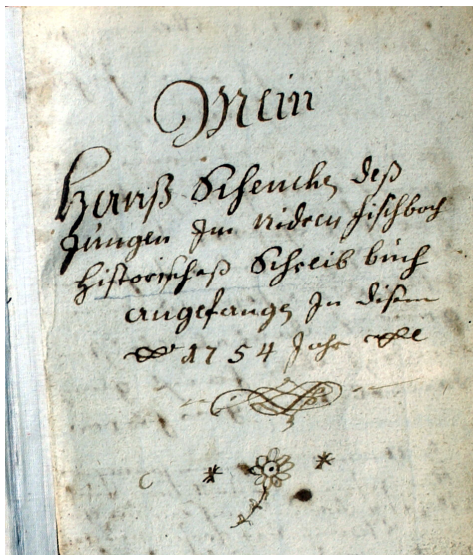 Mein
Hanß Schenckeṅ deß
Jungen Im Nidern fischbach
Historischeß Schreib buch
angefangen In disem
1754 Jahr